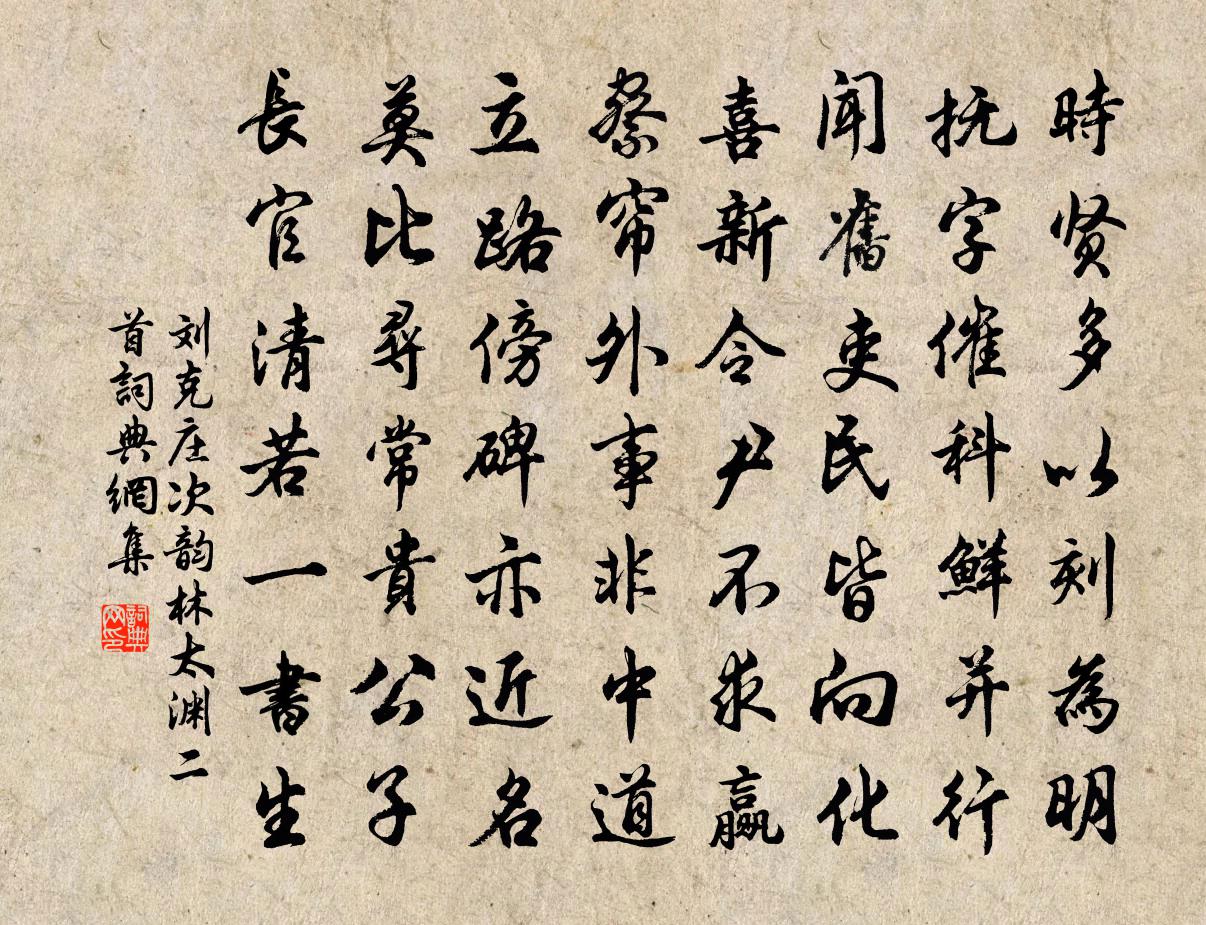 時贤多以刻為明
抚字催科鮮并行
闻舊吏民皆向化
喜新令尹不求赢
察帘外事非中道
立路傍碑亦近名
莫比尋常貴公子
長官清若一書生
刘克庄次韵林太渊二
首詞典網集
詞典网印